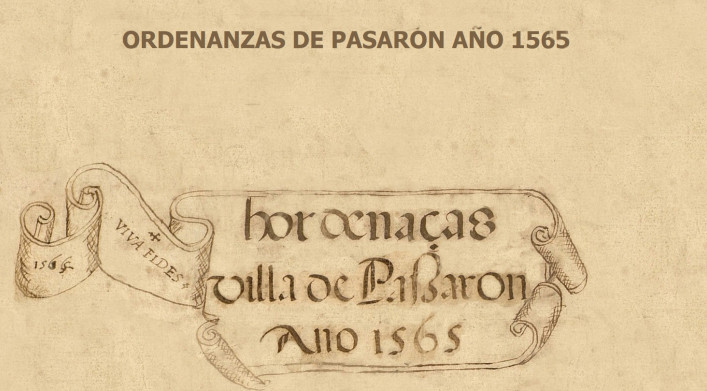 ORDENANZAS DE PASARÓN AÑO 1565
hordenaças
villa de Paßaron
Año 1565
VIVA FIDES
1565